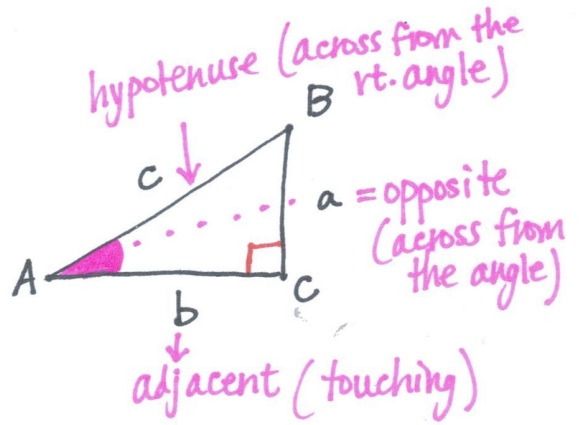 hypotenuse (across from the
rt. angle)
B
c
a = opposite
(across from
the angle)
A
C
b
adjacent (touching)